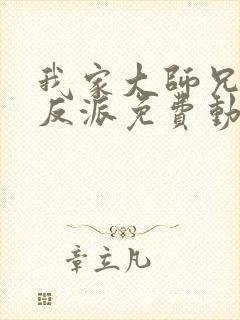 我家大師兄
反派免費動
章立凡